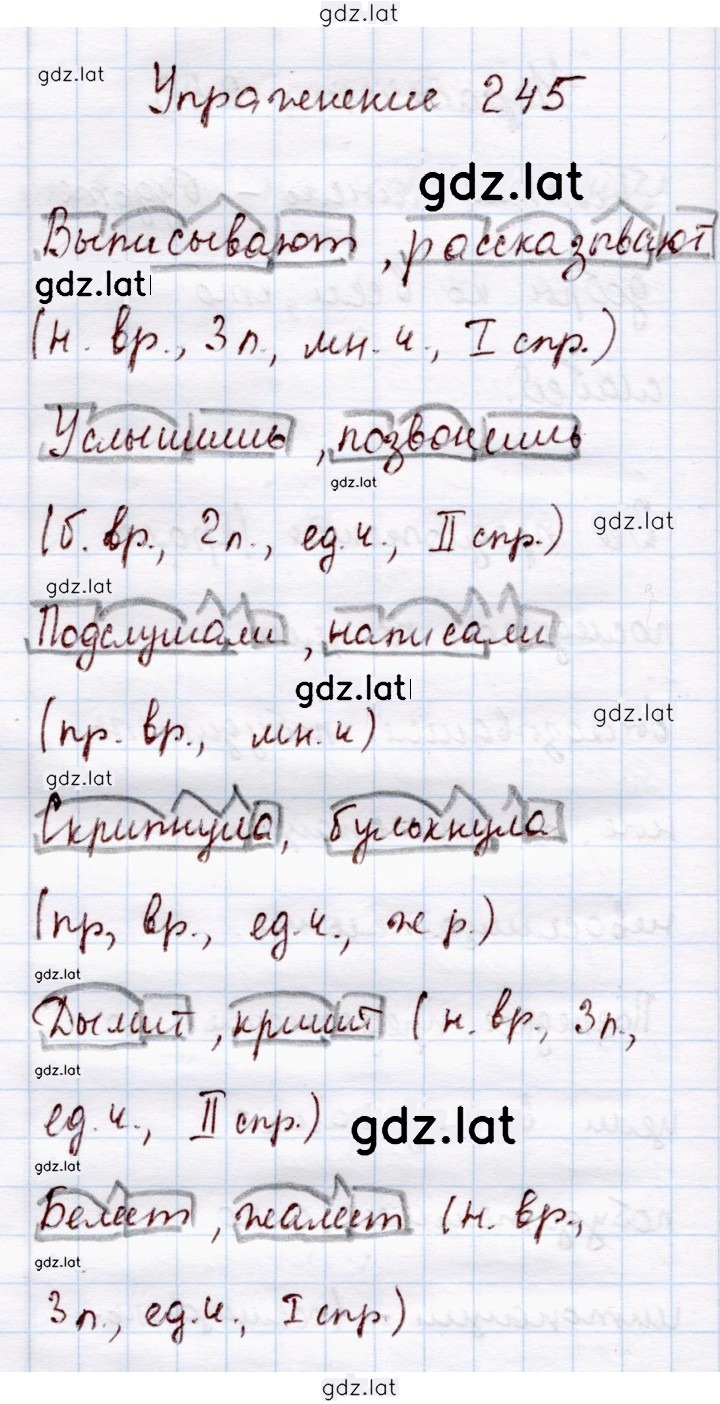 gdz.lat
gdz.lat
Упражнение 245
gdz.lat
Выписывают, рассказывают
gdz.lat
(н. вр., 3 л., мн. ч., I спр.)
Услышишь, позвонишь
gdz.lat
(б. вр., 2 л., ед. ч., II спр.)
gdz.lat
gdz.lat
Подслушали, написали
gdz.lat
(пр. вр., мн. ч)
gdz.lat
gdz.lat
Скрипнула, булькнула
(пр, вр., ед. ч., ж. р.)
gdz.lat
Дымит, кришит (н. вр., 3 л.,
gdz.lat
ед. ч., II спр.)
gdz.lat
gdz.lat
Белеет, жалеет (н. вр.,
gdz.lat
3 л., ед. ч., I спр.)
gdz.lat